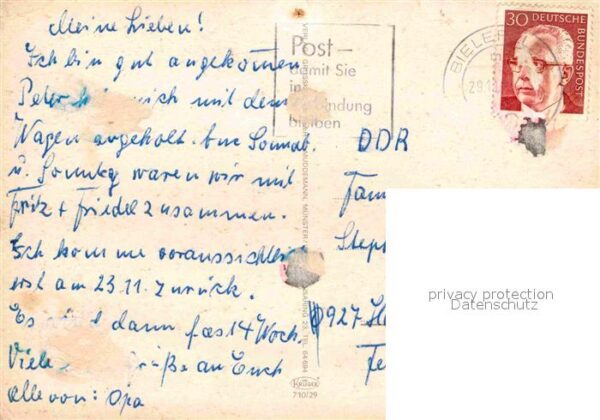 Meine Lieben!
Ich bin gut angekommen
Peter mich mit dem
Wagen abgeholt. Am Sonnab.
u. Sonntag waren wir mit
Fritz + Friedel zusammen.
Ich komme voraussichtlich
erst am 23.11. zurück.
Es sind dann fas 14 Woch.
Viele Grüße an Euch
alle von: Opa
Post-
damit Sie
in Verbindung
bleiben
BIELEF
29.1
30 DEUTSCHE
BUNDESPOST
DDR
Fam
Steph
927
KRÜGER
710/29
privacy protection
Datenschutz